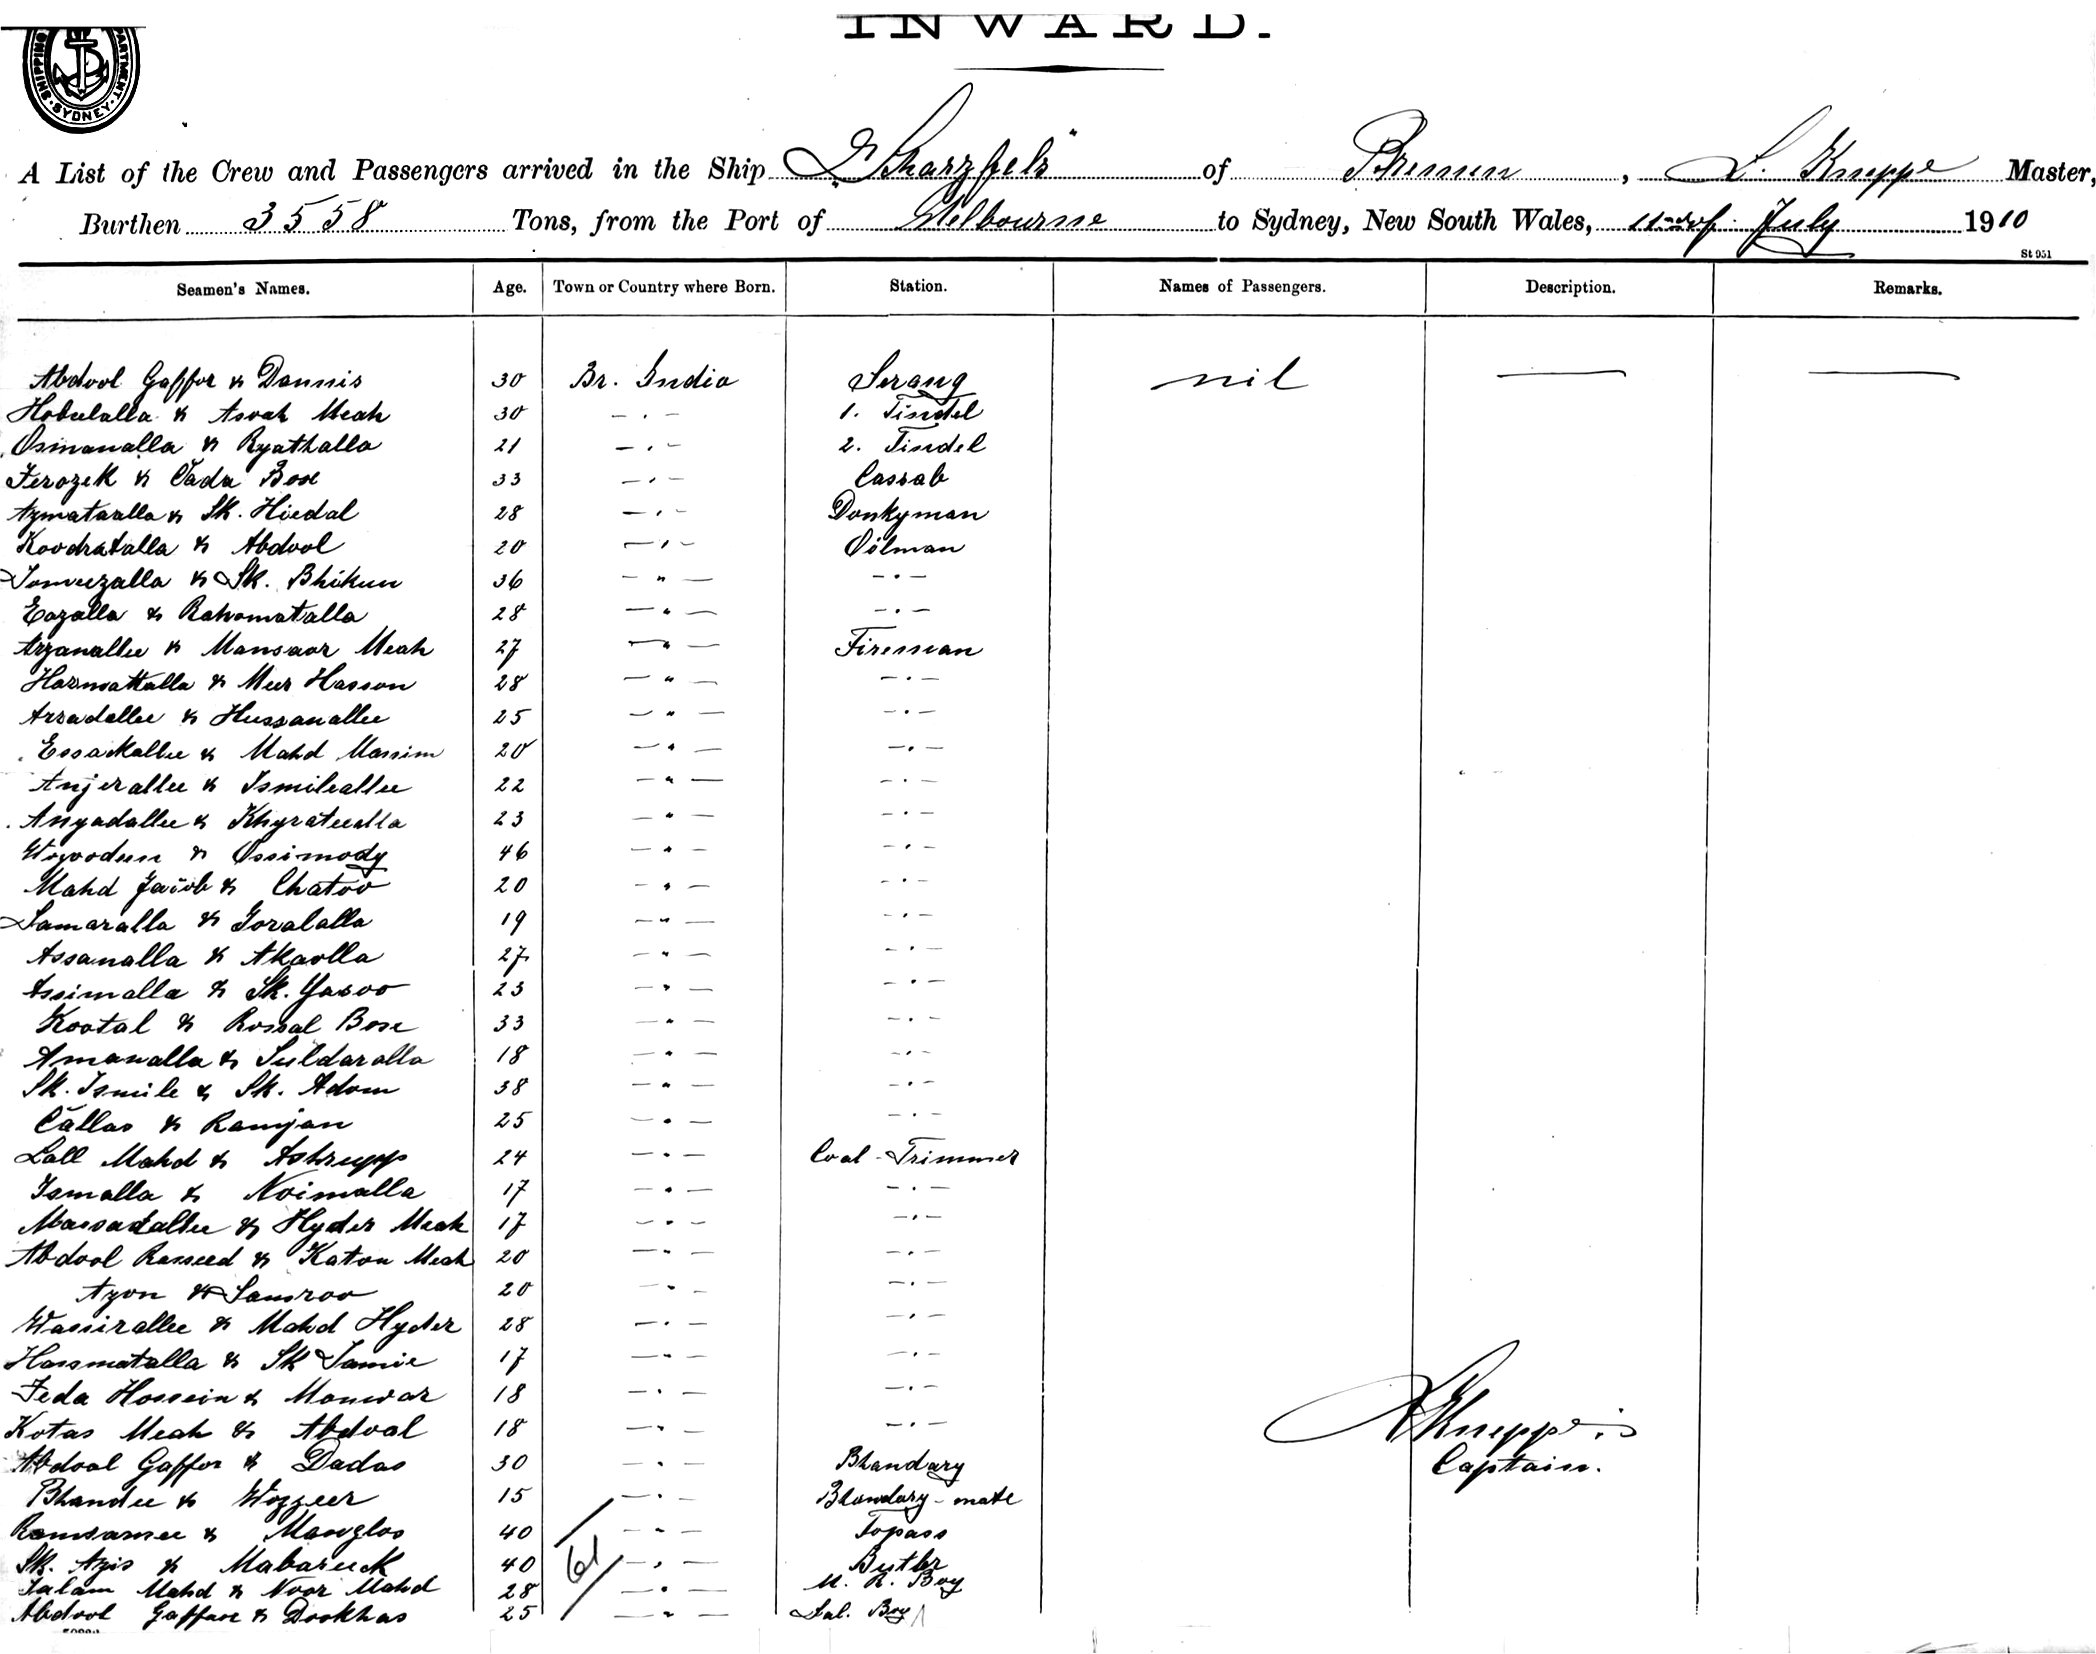 INWARD.
SHIPPING DEPARTMENT SYDNEY
A List of the Crew and Passengers arrived in the Ship D "Scharzfels" of Bremen, L. Kneppe Master,
Burthen 3558 Tons, from the Port of Melbourne to Sydney, New South Wales, 11th of July 1910
St 951
Seamen's Names. Age. Town or Country where Born. Station. Names of Passengers. Description. Remarks.
Abdool Gaffor & Dannis 30 Br. India Serang nil — —
Hobulalla & Asvah Meah 30 - . - 1. Tindel
Osmanalla & Ryathalla 21 - . - 2. Tindel
Ferozek & Cada Box 33 - . - Cassab
Azmataalla & Sk. Hiedal 28 - . - Donkyman
Koodratalla & Abdool 20 - . - Oilman
Tomeezalla & Sk. Bhikun 36 - " - - . -
Eazalla & Rahomatalla 28 - " - - . -
Arzanallee & Mansaor Meah 27 - " - Fireman
Hazmattalla & Meer Hasson 28 - " - - . -
Arsadallee & Hussanallee 25 - " - - . -
Essackallee & Mahd Massim 20 - " - - . -
Anjerallee & Ismileallee 22 - " - - . -
Anyadallee & Khyrateealla 23 - " - - . -
Wozoodeen & Ossimody 46 - " - - . -
Mahd Jacob & Chatoo 20 - " - - . -
Samaralla & Goralalla 19 - " - - . -
Assanalla & Akaolla 27 - " - - . -
Assimalla & Sk. Yasoo 23 - " - - . -
Kootal & Rossal Bose 33 - " - - . -
Amanalla & Suldaralla 18 - " - - . -
Sk. Ismile & Sk. Adom 38 - " - - . -
Callas & Ramjan 25 - " - - . -
Lall Mahd & Ashrupp 24 - " - Coal-Trimmer
Ismalla & Noimalla 17 - " - - . -
Massadallee & Hyder Meah 17 - " - - . -
Abdool Rasseed & Katou Meah 20 - " - - . -
Azon & Samroo 20 - " - - . -
Wassirallee & Mahd Hyder 28 - . - - . -
Hassmatalla & Sk Jamie 17 - " - - . -
Feda Hossein & Monwar 18 - . - - . -
Kotas Meah & Abdoal 18 - " - - . -
L Kneppe
Abdoal Gaffor & Dadas 30 - . - Bhandary
Captain.
Bhandee & Wozzeer 15 - . - Bhandary-mate
Ramsamee & Manglos 40 - " - Topass
Sk. Azis & Mabareck 40 - . - Butler
61
Salam Mahd & Noor Mahd 28 - . - M. R. Boy
Abdool Gaffare & Dookhas 25 - " - Sal. Boy